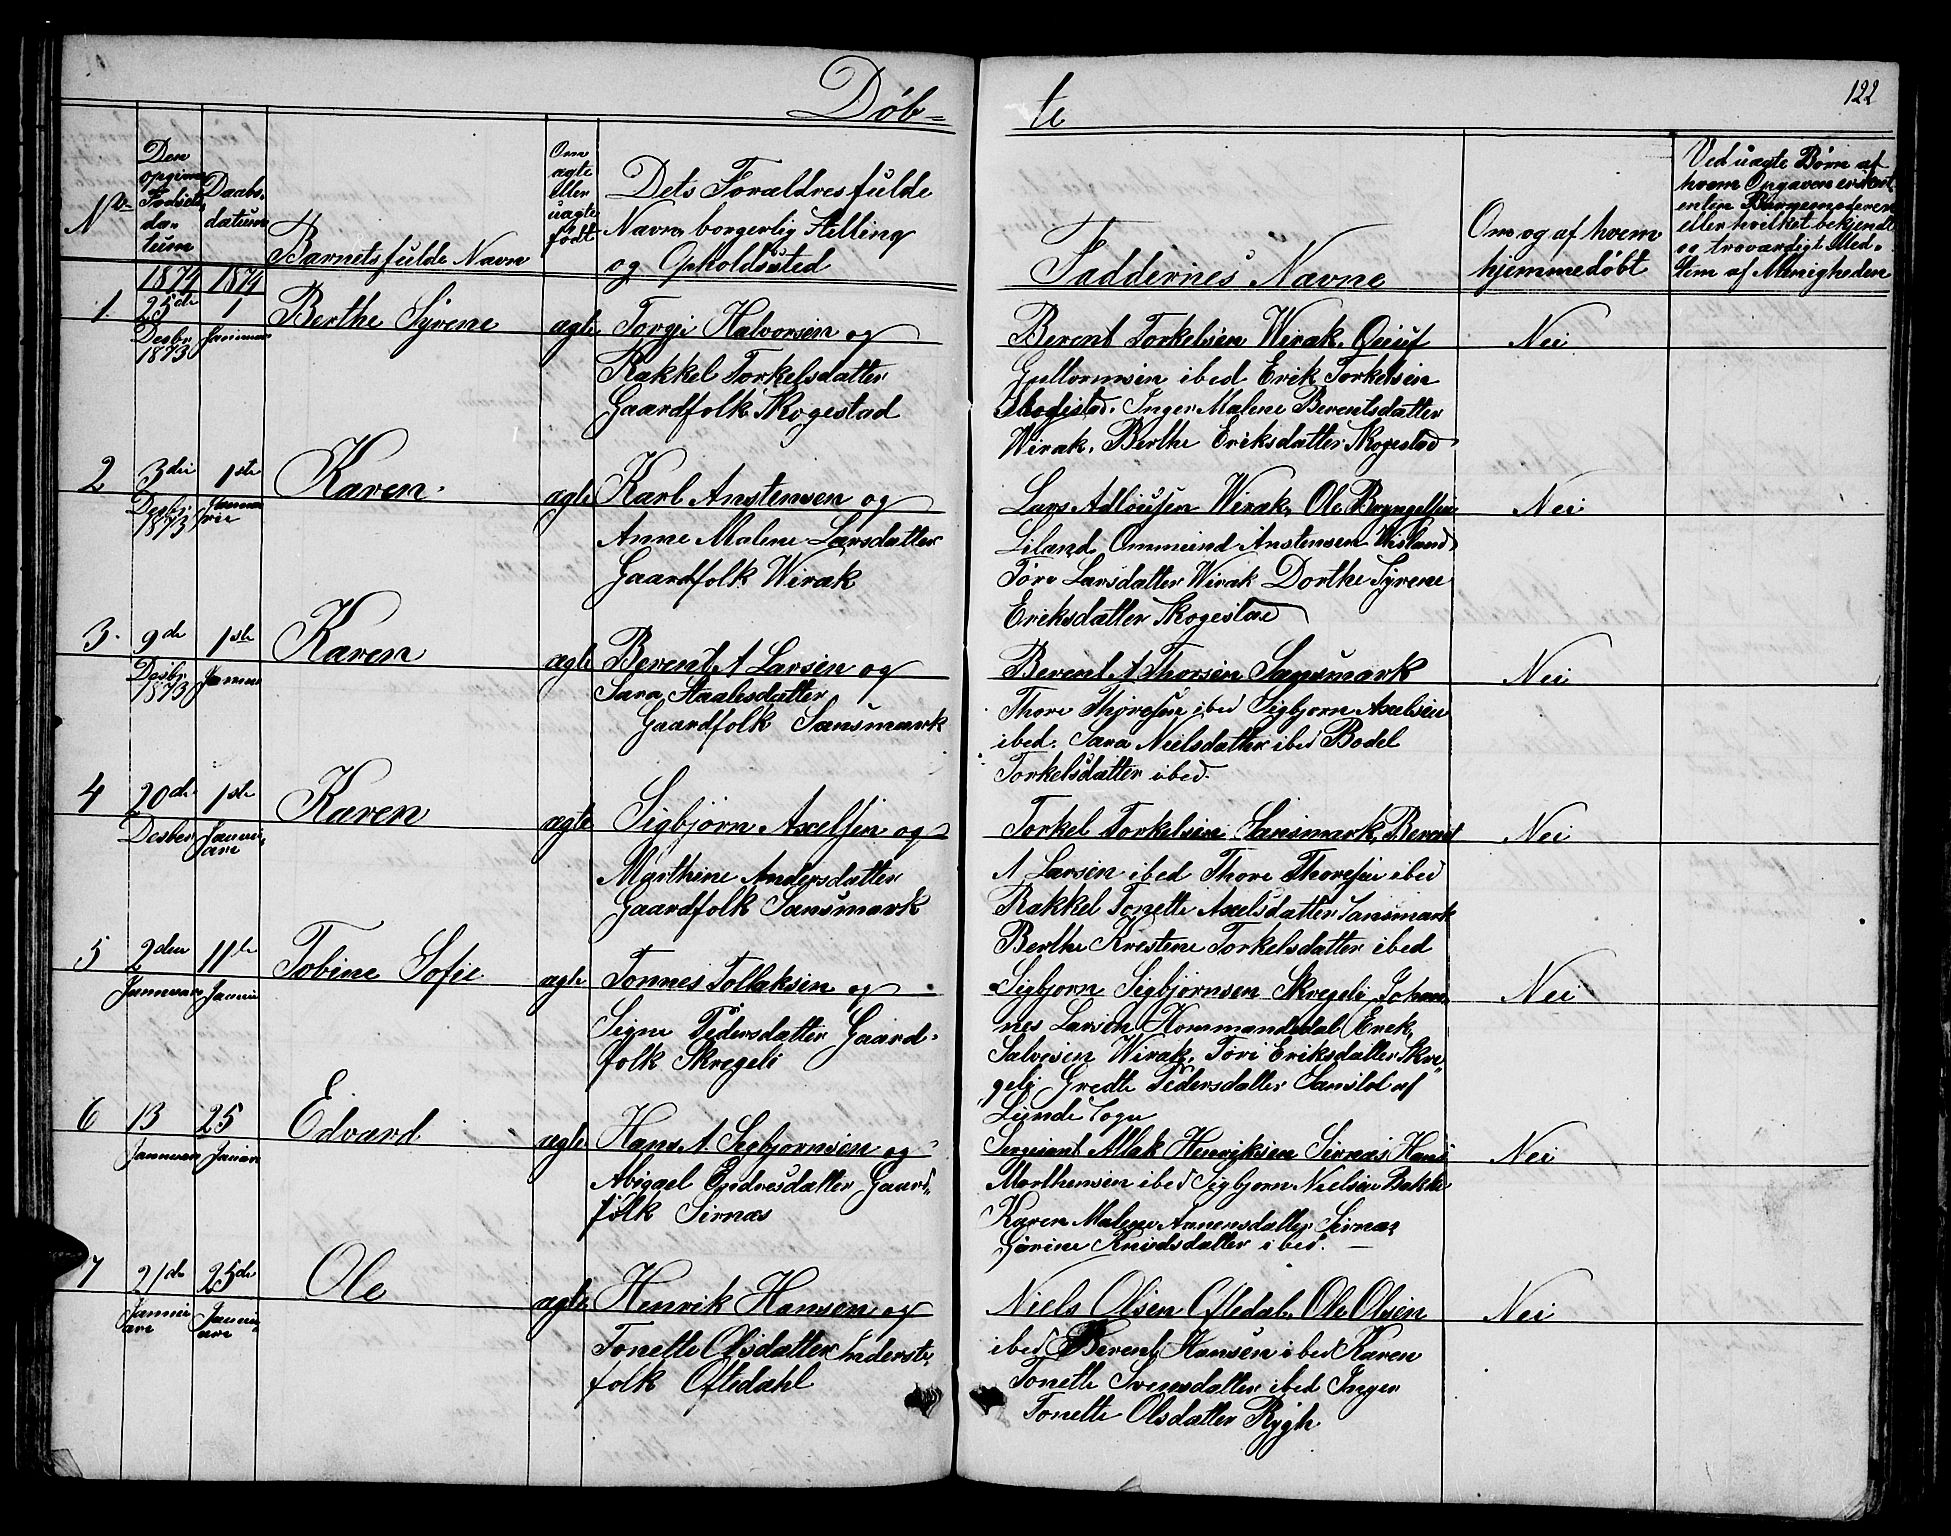 Døb-
te
122
No
Den
opgivne
Fødsels
da-
tum
Daabs-
datum
Barnets fulde Navn
Om
ægte
eller
uægte
født
Dets Forældres fulde
Navn, borgerlig Stilling
og Opholdssted
Faddernes Navne
Om og af hvem
hjemmedøbt
Ved uægte Børn af
hvem Opgaven er
enten
eller hvilket bekjendt
og troværdigt Med-
lem af Menigheden
1874 1874
1 25de 1 Berthe Syrene ægte Torgi Halvorsen og
Desbr Januar
1873 Rakkel Torkelsdatter
Gaardfolk Skogestad
Berent Torkelsen Wirak,
Guttormsen ibed Erik Torkelsen
Skogestad. Inger Malene Berentsdatter
Wirak, Berthe Eriksdatter Skogestad
Nei
2 3die 1ste Karen. ægte Karl Anstensen og
Desbr
1873 Anne Malene Larsdatter
Gaardfolk Wirak
Lars Wirak, Ole
Liland Ommund Anstensen
Larsdatter Wirak Dorthe Syrene
Eriksdatter Skogestad
Nei
3. 9de 1ste Karen ægte Berent A Larsen og
Desbr
1873 Sara Staalesdatter
Gaardfolk Sansmark
Berent A Thorsen Sansmark
Thore Thoresen ibed Sigbjorn Axelsen
ibed. Sara Nielsdatter ibed Bodel
Torkelsdatter ibed.
Nei
4 20de 1ste Karen ægte Sigbjorn Axelsen og
Desber Janu-
are
Marthine Andersdatter
Gaardfolk Sansmark
Torkel Torkelsen Sansmark, Berent
A Larsen ibed Thore Thoresen ibed
Rakkel Tonette Axelsdatter Sansmark
Berthe Krestene Torkelsdatter ibed
Nei
5 2den 11te Tobine Sofie ægte Tonnes Tollaksen og
Signe Pedersdatter Gaard-
folk Skregeli
Sigbjorn Sigbjørnsen Skregeli Johan-
nes Larsen Hommandsdal Erek
Salvesen Wirak, Tori Eriksdatter Skre-
geli Gredte Pedersdatter af
Lunde Sogn
Nei
6 13 25 Edvard ægte Hans A. Sigbjornsen og
Abigael Endresdatter Gaard-
folk Sirnæs
Sergeant Henriksen Sirnæs Hans
Morthensen ibed Sigbjorn Nielsen Bakke
Karen Malene Sirnæs
Knudsdatter ibed.
Nei
7 21de 25de Ole ægte Henrik Hansen og
Janu- Janu-
are are
Tonette Olsdatter Inderste-
folk Oftedahl
Niels Olsen Oftedal, Ole Olsen
ibed Berent Hansen ibed Karen
Tonette Svensdatter ibed Inger
Tonette Olsdatter Rygh
Nei